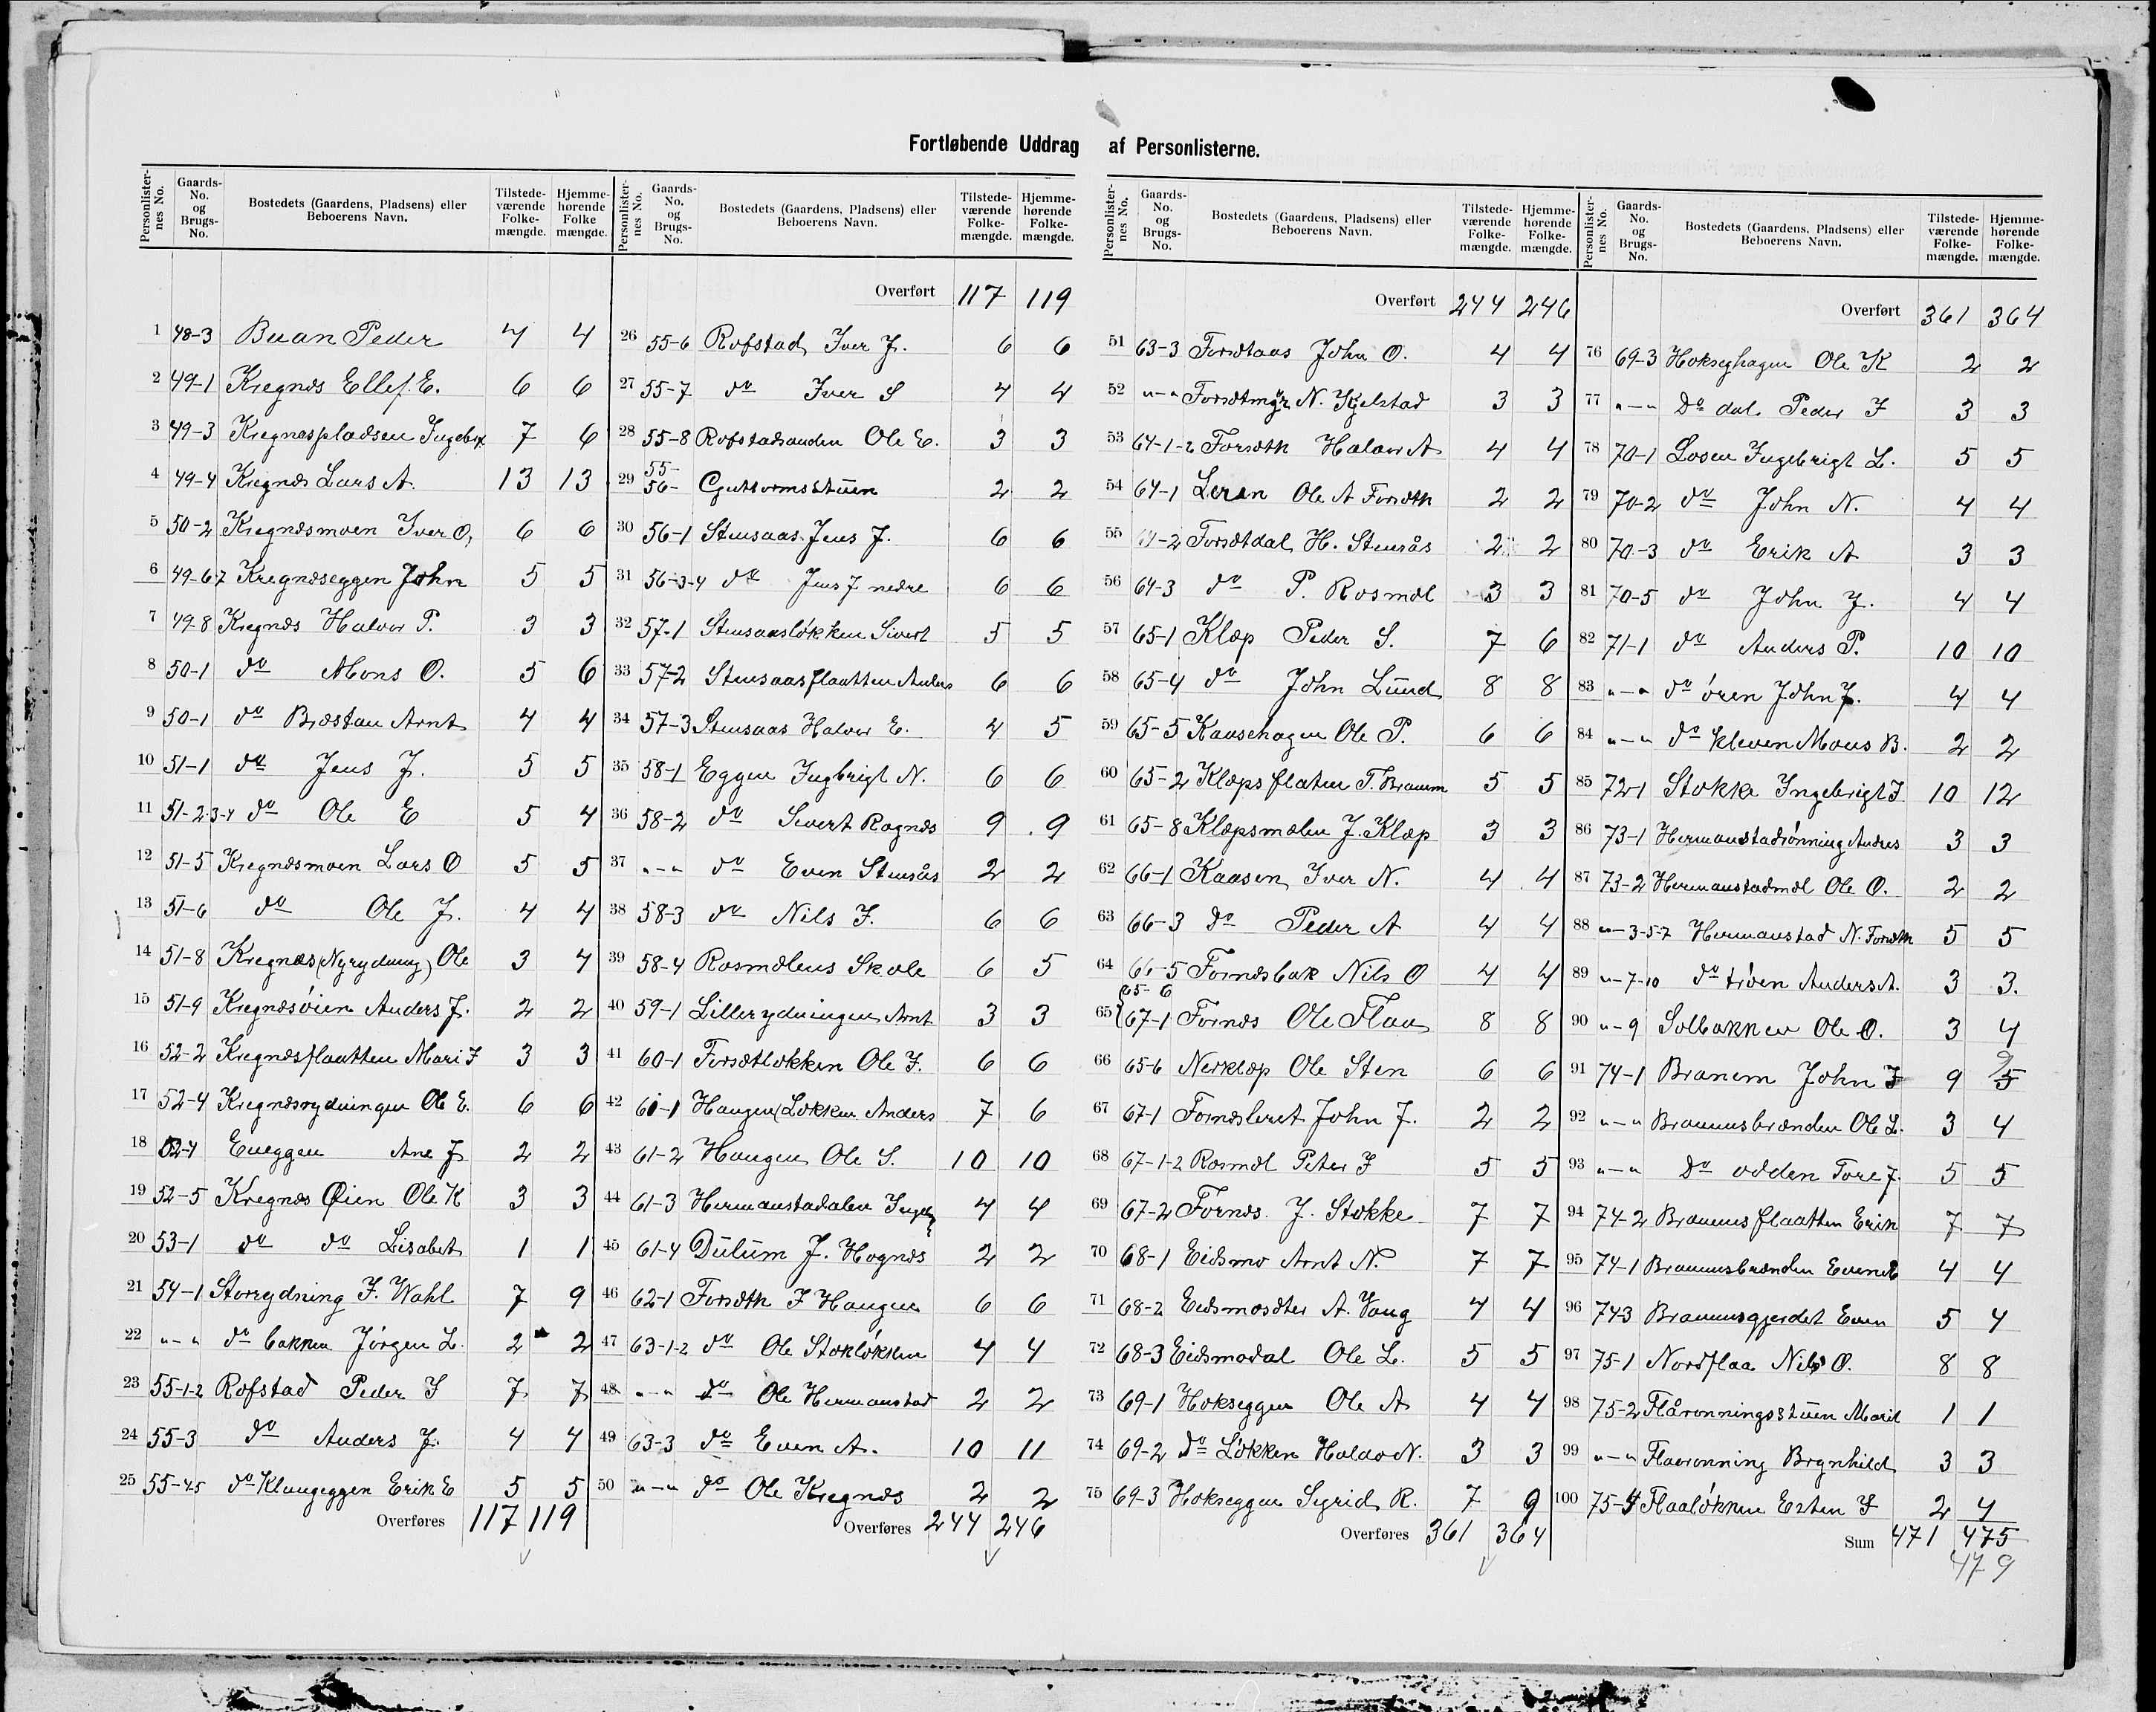 Fortløbende Uddrag af Personlisterne.
Personlister-nes No. Gaards-No. og Brugs-No. Bostedets (Gaardens, Pladsens) eller Beboerens Navn. Tilstede-værende Folke-mængde. Hjemme-hørende Folke mængde.
1 48-3 Buan Peder 4 4
2 49-1 Kregnæs Ellef E. 6 6
3 49-3 Kregnæspladsen Ingebrt 7 6
4 49-4 Kregnæs Lars A. 13 13
5 50-2 Kregnæsmoen Iver O, 6 6
6 49-6-7 Kregnæseggen John 5 5
7 49-8 Kregnæs Halvor P. 3 3
8 50-1 do Mons O. 5 6
9 50-1 do Bræstau Arnt 4 4
10 51-1 do Jens J. 5 5
11 51-2-3-4 do Ole E 5 4
12 51-5 Kregnæsmoen Lars O 5 5
13 51-6 do Ole J. 4 4
14 51-8 Kregnæs (Nyrydning) Ole 3 4
15 51-9 Kregnæsöien Anders J. 2 2
16 52-2 Kregnæsflaatten Mari J 3 3
17 52-4 Kregnæsrydningen Ole E. 6 6
18 52-4 Eneggen Ane J 2 2
19 52-5 Kregnæs Øien Ole K 3 3
20 53-1 do do Lisabet 1 1
21 54-1 Storrydning J. Wahl 7 9
22 "-" do bakken Jörgen L. 2 2
23 55-1-2 Rofstad Peder J 7 7
24 55-3 do Anders J. 4 4
25 55-4-5 do Klungeggen Erik E 5 5
Overføres 117 119
Personlister-nes No. Gaards-No. og Brugs-No. Bostedets (Gaardens, Pladsens) eller Beboerens Navn. Tilstede-værende Folke-mængde. Hjemme-hørende Folke-mængde.
Overført 117 119
26 55-6 Rofstad Iver J. 6 6
27 55-7 do Iver S 4 4
28 55-8 Rofstadsanden Ole E. 3 3
29 55- 56- Guttormsstuen 2 2
30 56-1 Stensaas Jens J. 6 6
31 56-3-4 do Jens J nedre 6 6
32 57-1 Stensaasløkken Sivert 5 5
33 57-2 Stensaasflaatten Anders 6 6
34 57-3 Stensaas Halvor E. 4 5
35 58-1 Eggen Ingbrigt N. 6 6
36 58-2 do Sivert Rognæs 9 9
37 "-" do Even Stensås 2 2
38 58-3 do Nils J. 6 6
39 58-4 Rosmælens Skole 6 5
40 59-1 Lillerydningen Arnt 3 3
41 60-1 Forsætløkken Ole J. 6 6
42 61-1 Haugen (Løkken Anders 7 6
43 61-2 Haugen Ole S. 10 10
44 61-3 Hermanstadalen 4 4
45 61-4 Dulum J. Hognæs 2 2
46 62-1 Forsæth J Haugen 6 6
47 63-1-2 do Ole Stokløkken 4 4
48 "-" do Ole Hermanstad 2 2
49 63-3 do Even A. 10 11
50 "-" do Ole Kregnæs 2 2
Overføres 244 246
Personlister-nes No. Gaards-No. og Brugs-No. Bostedets (Gaardens, Pladsens) eller Beboerens Navn. Tilstede-værende Folke-mængde. Hjemme-hørende Folke-mængde.
Overført 244 246
51 63-3 Forsætaas John O. 4 4
52 "-" Forsætmyr N. Kjelstad 3 3
53 64-1-2 Forsæth Halvor A 4 4
54 64-1 Leran Ole A Forsæth 2 2
55 64-2 Forsætdal H. Stensås 2 2
56 64-3 do P. Rosmæl 3 3
57 65-1 Klæp Peder S. 7 6
58 65-4 do John Lund 8 8
59 65-5 Kausehagen Ole P. 6 6
60 65-2 Klæpsflaten T. Branem 5 5
61 65-8 Klæpsmælen J. Klæp 3 3
62 66-1 Kaasen Iver N. 4 4
63 66-3 do Peder A 4 4
64 66-5 Fornæsbak Nils O 4 4
65 65-6 67-1 Fornæs Ole Flaa 8 8
66 65-6 Nerklæp Ole Sten 6 6
67 67-1 Fornæsleret John J. 2 2
68 67-1-2 Rosmæl Peter J 5 5
69 67-2 Fornæs J. Stokke 7 7
70 68-1 Eidsmo Arnt N. 7 7
71 68-2 Eidsmosæter A. Vang 4 4
72 68-3 Eidsmodal Ole L. 5 5
73 69-1 Hokseggen Ole A 4 4
74 69-2 do Løkken Haldo N. 3 3
75 69-3 Hokseggen Sigrid R. 7 9
Overføres 361 364
Personlister-nes No. Gaards-No. og Brugs-No. Bostedets (Gaardens, Pladsens) eller Beboerens Navn. Tilstede-værende Folke-mængde. Hjemme-hørende Folke-mængde.
Overført 361 364
76 69-3 Hokseghagen Ole K 2 2
77 "-" Do dal Peder J 3 3
78 70-1 Losen Ingebrigt L. 5 5
79 70-2 do John N. 4 4
80 70-3 do Erik A 3 3
81 70-5 do John J. 4 4
82 71-1 do Anders P. 10 10
83 "-" do ören John J. 4 4
84 "-" do kleven Mons B. 2 2
85 72-1 Stokke Ingebrigt J 10 12
86 73-1 Hermanstadrønning Anders 3 3
87 73-2 Hermanstadmæl Ole O. 2 2
88 "-3-5-7 Hermanstad N. Forsæth 5 5
89 "-7-10 do trøen Anders A. 3 3.
90 "-9 Solbakken Ole O. 3 4
91 74-1 Branem John J 9 5 9
92 "-" Branemsbrænden Ole L. 3 4
93 "-" Do odden Tore J. 5 5
94 74-2 Branemsflaatten Erik 7 7
95 74-1 Branemsbrænden Even E 4 4
96 74-3 Branemsgjerdet Even 5 4
97 75-1 Nordflaa Nils O. 8 8
98 75-2 Flårønningsstuen Marit 1 1
99 "-" Flaarønning Brynhild 3 3
100 75-4 Flaaløkken Esten J 2 4
Sum 471 475
479